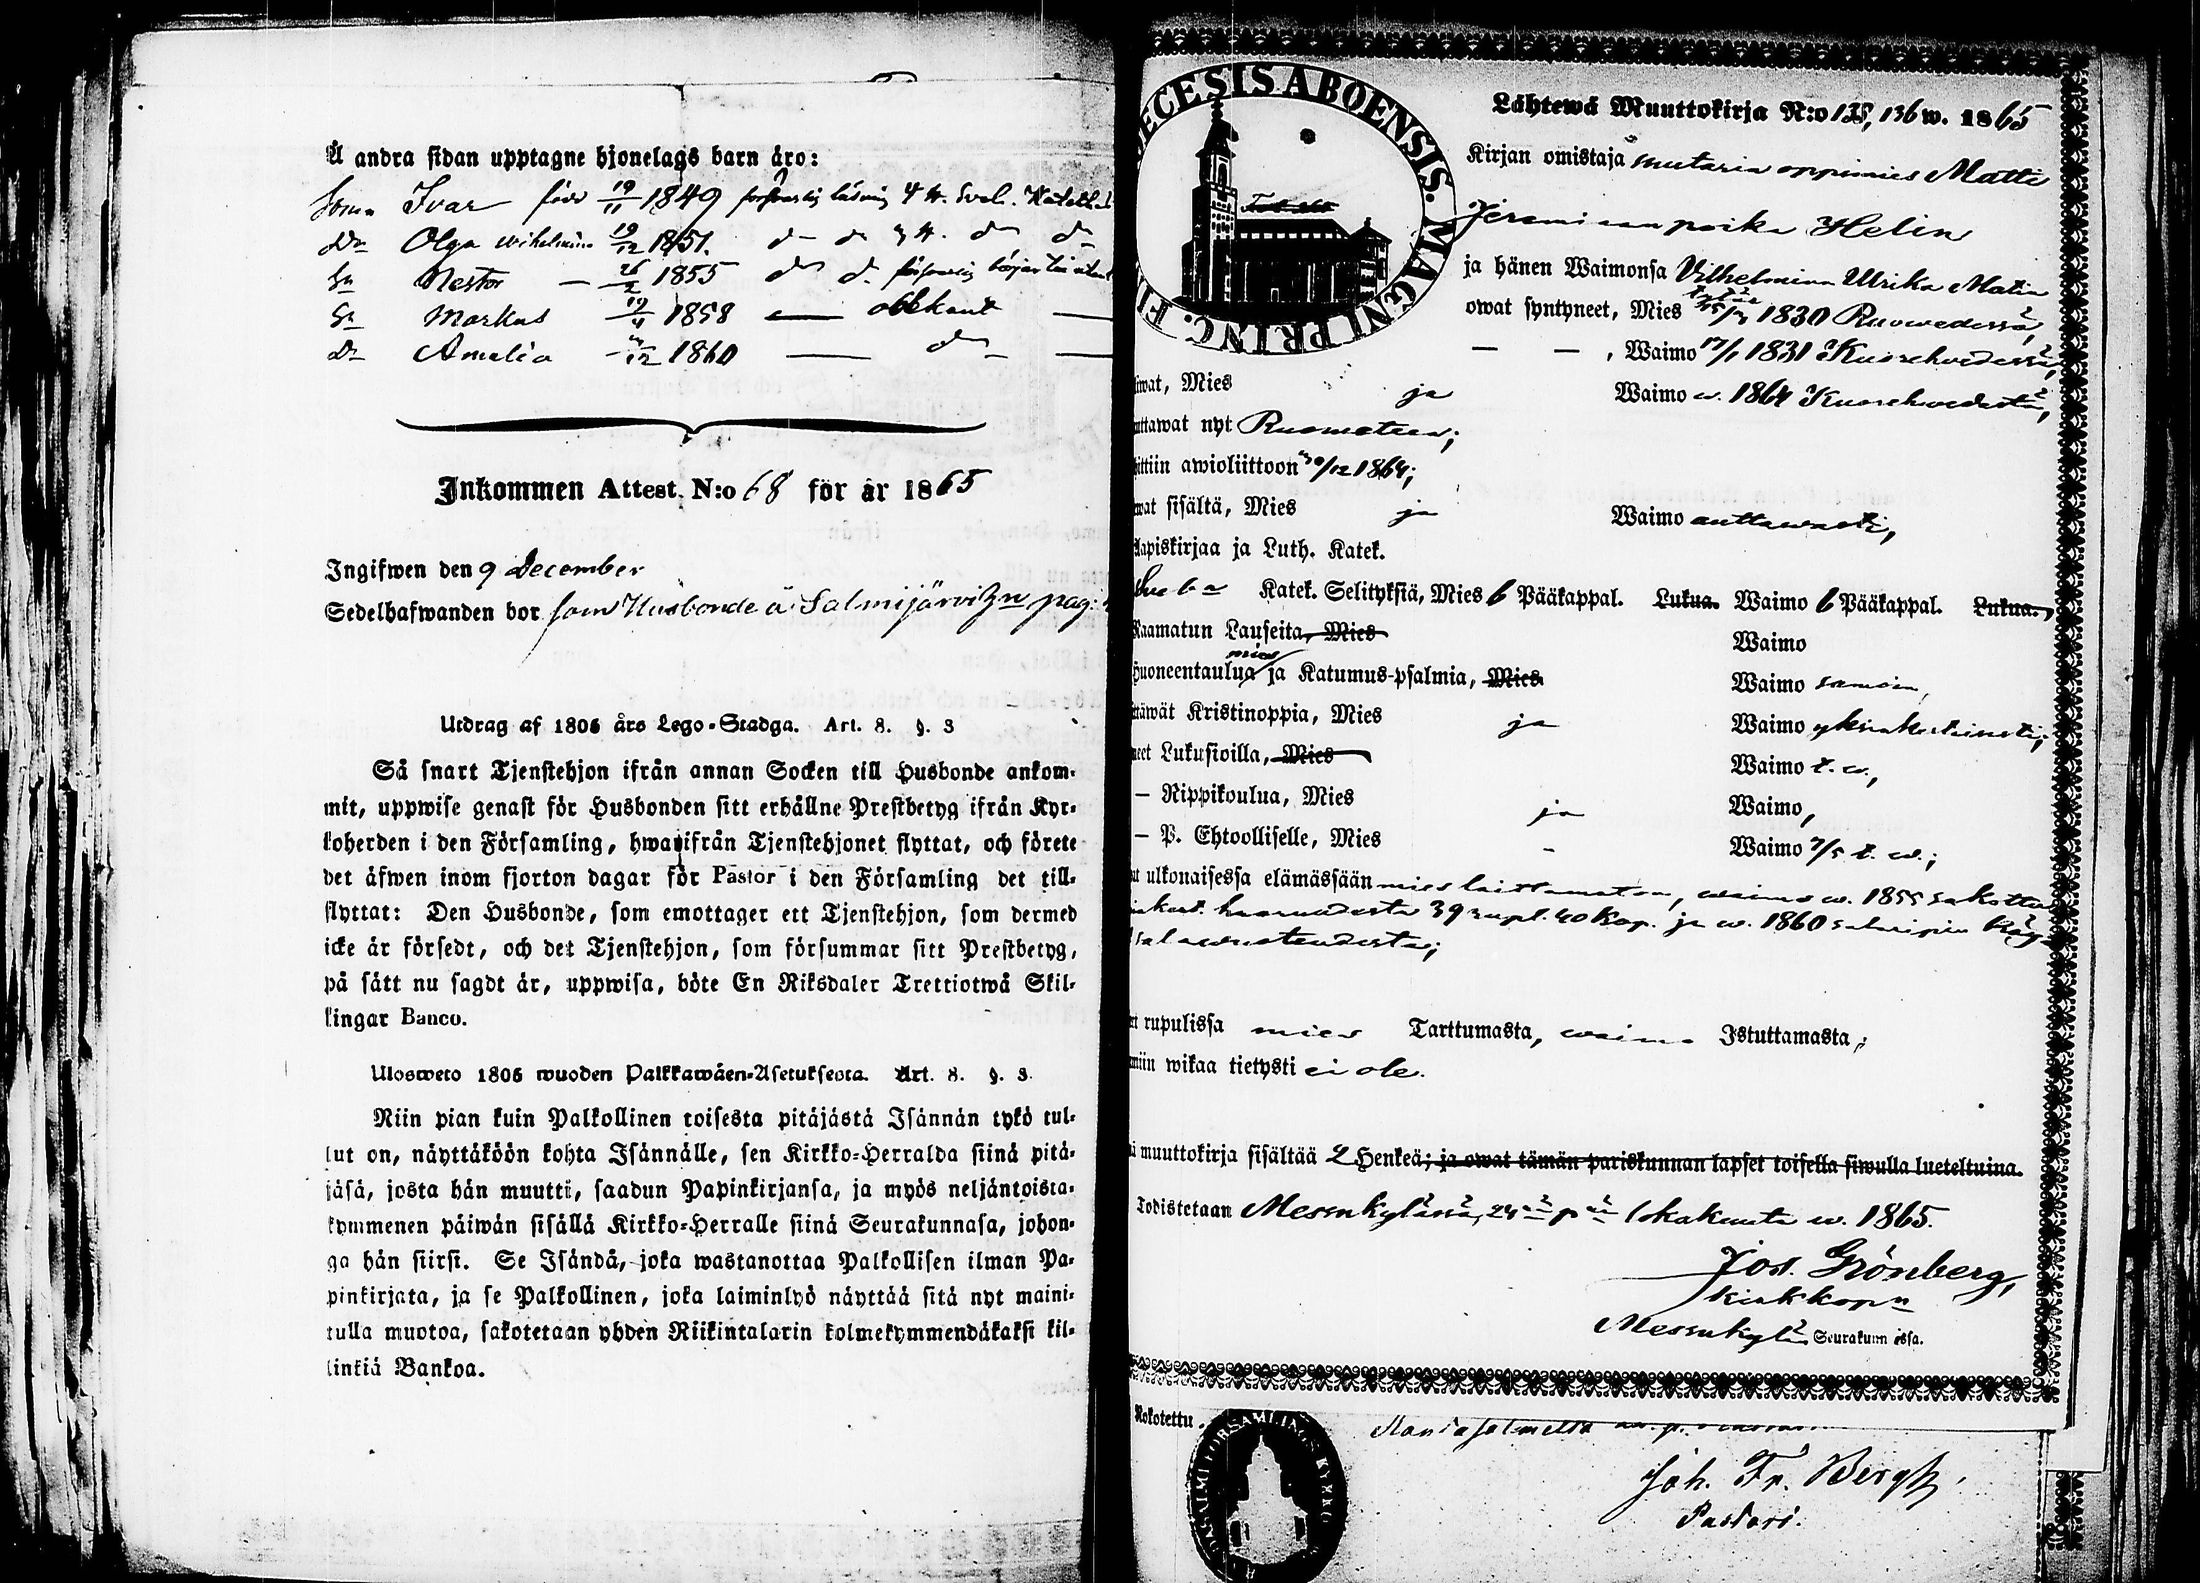 Å andra sidan upptagne hjonelags barn äro:
Son Ivar född 19/11 1849 försvarlig läsning 4 st. Sveb. Katek.
Dr Olga Wilhelmina 19/12 1851. d– d– 3 st. d– d–
Sn Nestor — 26/2 1855 d– d– försvarlig börjar
Sn Markus — 19/4 1858 — obekant —
Dr Amalia — /12 1860 — d– —
Inkommen Attest. N:o 68 för år 1865
Ingifwen den 9 December
Sedelhafwanden bor som Husbonde å Salmijärvi pag:
Utdrag af 1806 års Lego-Stadga. Art. 8. §. 3
Så snart Tjenstehjon ifrån annan Socken till Husbonde ankom-
mit, uppwise genast för Husbonden sitt erhållne Prestbetyg ifrån Kyr-
koherden i den Församling, hwarifrån Tjenstehjonet flyttat, och förete
det äfwen inom fjorton dagar för Pastor i den Församling det till-
flyttat: Den Husbonde, som emottager ett Tjenstehjon, som dermed
icke är försedt, och det Tjenstehjon, som försummar sitt Prestbetyg,
på sätt nu sagdt är, uppwisa, böte En Riksdaler Trettiotwå Skil-
lingar Banco.
Ulosweto 1806 wuoden Palkkawäen-Asetuksesta. Art. 8. §. 3.
Niin pian kuin Palkollinen toisesta pitäjästä Isännän tykö tul-
lut on, näyttäköön kohta Isännälle, sen Kirkko-Herralda siinä pitä-
jäsä, josta hän muutti, saadun Papinkirjansa, ja myös neljäntoista-
kymmenen päiwän sisällä Kirkko-Herralle siinä Seurakunnasa, johon-
ga hän siirsi. Se Isändä, joka wastanottaa Palkollisen ilman Pa-
pinkirjata, ja se Palkollinen, joka laiminlyö näyttää sitä nyt maini-
tulla muotoa, sakotetaan yhden Riikintalarin kolmekymmendäkaksi kil-
linkiä Bankoa.
ECESIS ABOENSIS. MAGNI PRINC. FI
Lähtewä Muuttokirja N:o 135, 136 w. 1865
Kirjan omistaja mutarin oppimies Matti
Jeremiaanpoika Helin
ja hänen Waimonsa Vilhelmina Ulrika Matin
tytär
owat syntyneet, Mies 25/3 1830 Ruowedessä,
— — , Waimo 17/1 1831 Kuorehwedessä,
iwat, Mies ja Waimo w. 1864 Kuorehwedestä,
uttawat nyt Ruoweteen;
ittiin awioliittoon 30/12 1864;
wat sisältä, Mies ja Waimo auttawasti,
Aapiskirjaa ja Luth. Katek.
Katek. Selityksiä, Mies 6 Pääkappal. Lukua. Waimo 6 Pääkappal. Lukua.
Raamatun Lauseita, Mies Waimo
mies
Huoneentaulua ja Katumus-psalmia, Mies Waimo samoin,
ttäwät Kristinoppia, Mies ja Waimo yksinkertaisesti;
neet Lukusioilla, Mies Waimo t. w.,
— Rippikoulua, Mies ja Waimo,
— P. Ehtoolliselle, Mies - Waimo 7/5 t. w.;
t ulkonaisessa elämässään mies laittamaton, waimo w. 1855 sakottu
kert. huoruudesta 39 rupl. 40 kop. ja w. 1860 salwipien käy-
salawuoteudesta;
t rupulissa mies Tarttumasta, waimo Istuttamasta;
miin wikaa tietysti ei ole.
ä muuttokirja sisältää 2 Henkeä; ja owat tämän pariskunnan lapset toisella siwulla lueteltuina.
Todistetaan Messukylässä, 24nä pnä lokakuuta w. 1865.
Jos. Grönberg,
kirkkoh:a
Messukylän Seurakunnassa.
Rokotettu
FÖRSAMLINGS KYRKO
Joh. Fr. Bergh,
Pastori.